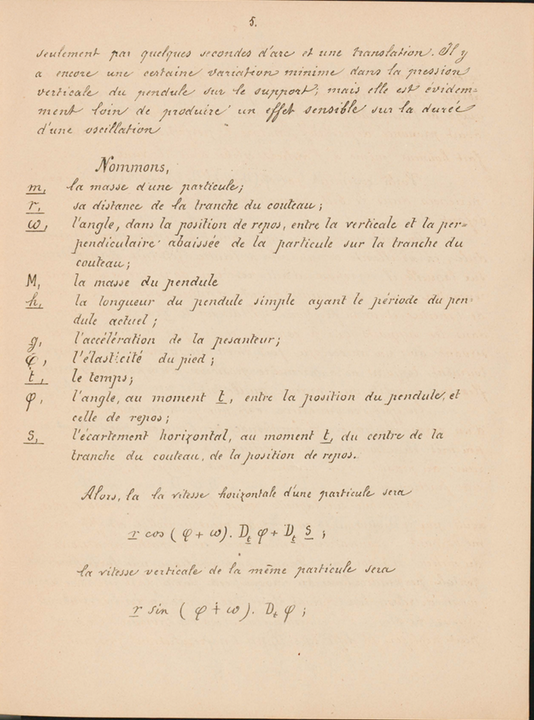 5.
seulement par quelques secondes d'arc et une translation. Il y
a encore une certaine variation minime dans la pression
verticale du pendule sur le support; mais elle est évidem=
ment loin de produire un effet sensible sur la durée
d'une oscillation
Nommons,
m, la masse d'une particule;
r, sa distance de la tranche du couteau;
ω, l'angle, dans la position de repos, entre la verticale et la per=
pendiculaire abaissée de la particule sur la tranche du
couteau;
M, la masse du pendule
h, la longueur du pendule simple ayant le période du pen
dule actuel;
g, l'accélération de la pesanteur;
φ, l'élasticité du pied;
t, le temps;
φ, l'angle, au moment t, entre la position du pendule, et
celle de repos;
s, l'écartement horizontal, au moment t, du centre de la
tranche du couteau, de la position de repos.
Alors, la la vitesse horizontale d'une particule sera
r cos (φ + ω). Dt φ + Dt s;
la vitesse verticale de la même particule sera
r sin (φ + ω). Dt φ;